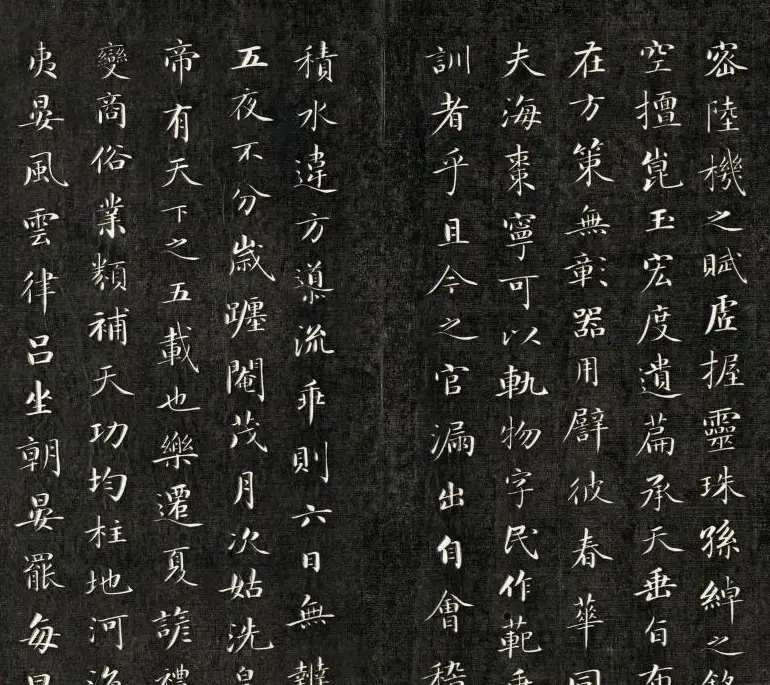 密陸機之賦虛握靈珠孫綽之銘
空擅崑玉宏度遺篇承天垂旨布
在方策無彰器用譬彼春華同
夫海棗寧可以軌物字民作範垂
訓者乎且今之官漏出自會稽
積水違方導流乖則六日無辨
五夜不分歲躔閹茂月次姑洗皇
帝有天下之五載也樂遷夏諺禮
變商俗業類補天功均柱地河海
夷晏風雲律呂坐朝晏罷每旦